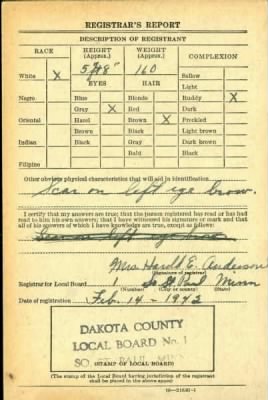 REGISTRAR'S REPORT
DESCRIPTION OF REGISTRANT
RACE HEIGHT (Approx.) WEIGHT (Approx.) COMPLEXION
White X 5 8" 160 Sallow
EYES HAIR Light
Negro Blue Blonde Ruddy X
Gray X Red Dark
Oriental Hazel Brown X Freckled
Brown Black Light brown
Indian Black Gray Dark brown
Bald Black
Filipino
Other obvious physical characteristics that will aid in identification
Scar on left eye brow.
I certify that my answers are true; that the person registered has read or has had
read to him his own answers; that I have witnessed his signature or mark and that
all of his answers of which I have knowledge are true, except as follows:
Scar on left eye brow
Mrs Harold E. Anderson
(Signature of registrar)
Registrar for Local Board 1 So St Paul Minn
(Number) (City or county) (State)
Date of registration Feb. 14 - 1942
DAKOTA COUNTY
LOCAL BOARD No. 1
SO. ST. PAUL, MINN.
(STAMP OF LOCAL BOARD)
(The stamp of the Local Board having jurisdiction of the registrant
shall be placed in the above space.)
16—21630-1